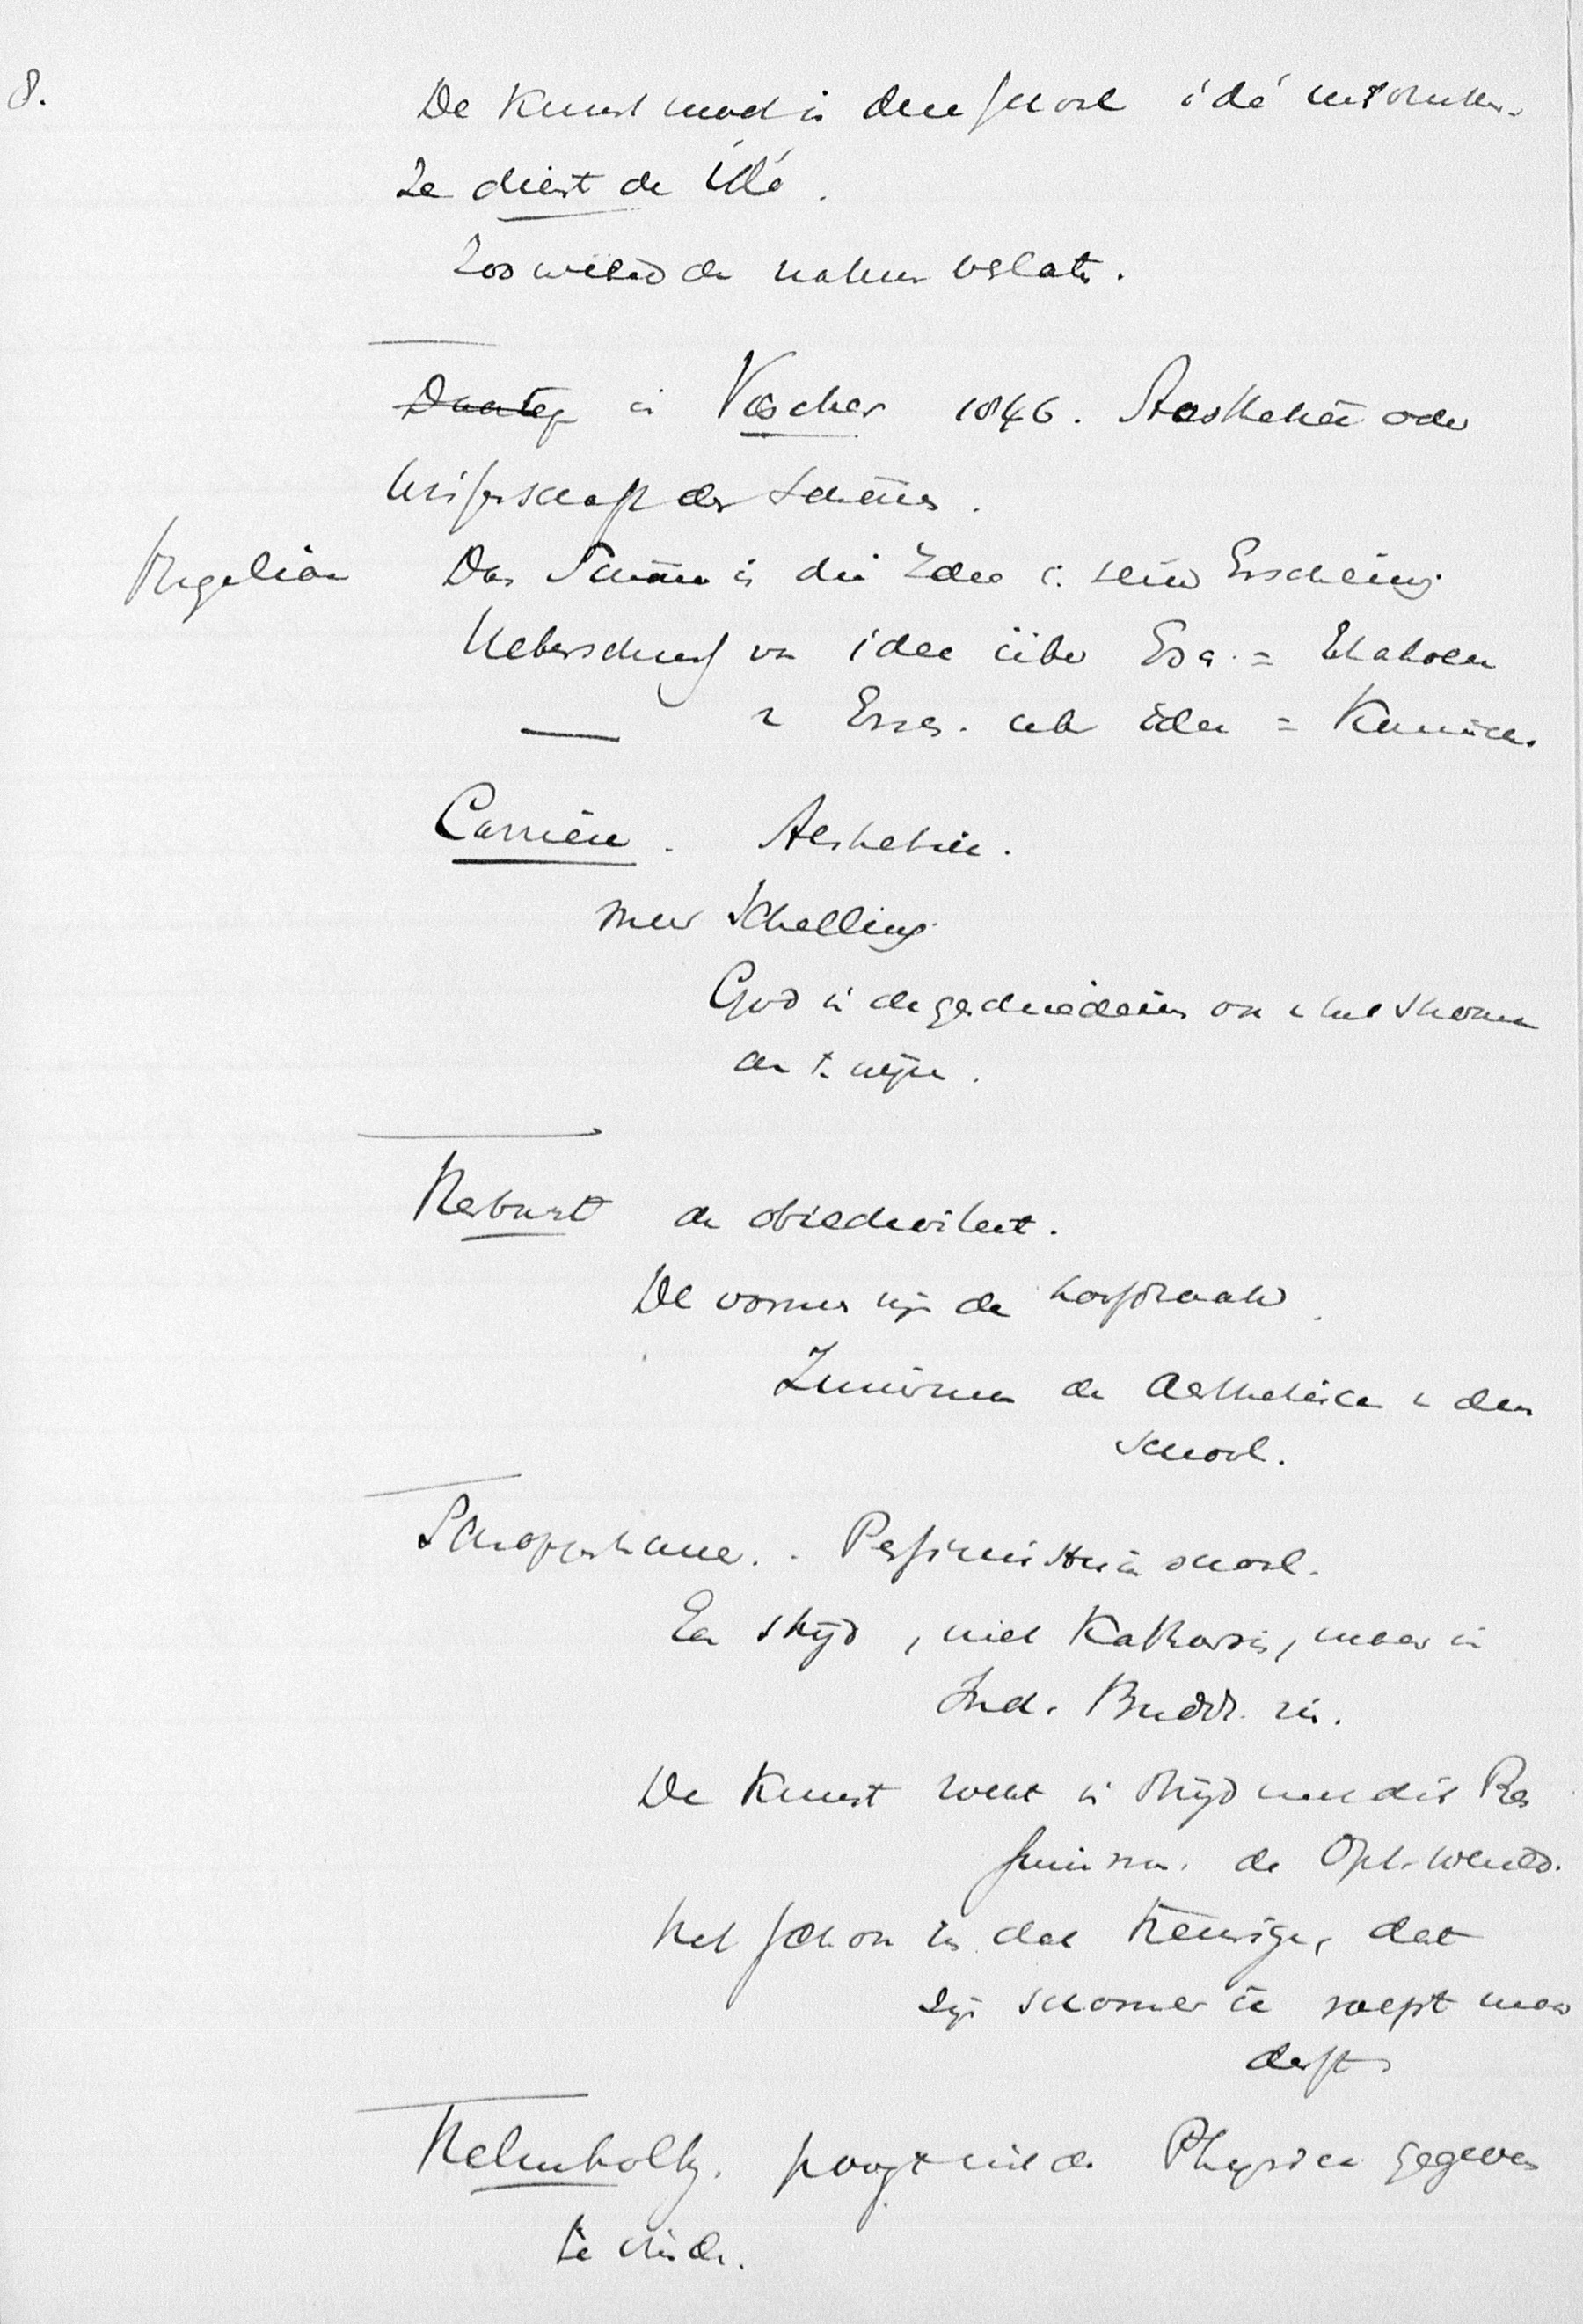 8.
De Kunst moet in deze school idé uitdrukken.
Ze dient de idé.
Zoo wierd de natuur verlaten.
in Vischer 1846. Aesthetik oder
Wissenschaft des Schönen.
Hegelian Das Schöne is die Idee i. seiner Erscheinung
Ueberschuss von idee über Ersch. = Erhaben
— " Ersch. über idee = Komisch.
Carrière. Aesthetik.
meer Schelling.
God in de geschiedenis en in het Schoone
Herbart de objectiviteit.
De vormen zijn de hoofdzaak.
Zimmermann de Aestheticus in deze
school.
Schopenhauer. Pessimistische school.
Een strijd, niet Katharsis, maar in
Ind. Budd. zin.
De Kunst zoekt in strijd met dit Pes
simism. de Opt. wereld.
Het schoon is dat
Helmholtz. poogt uit de Physica gegevens
te vinden.